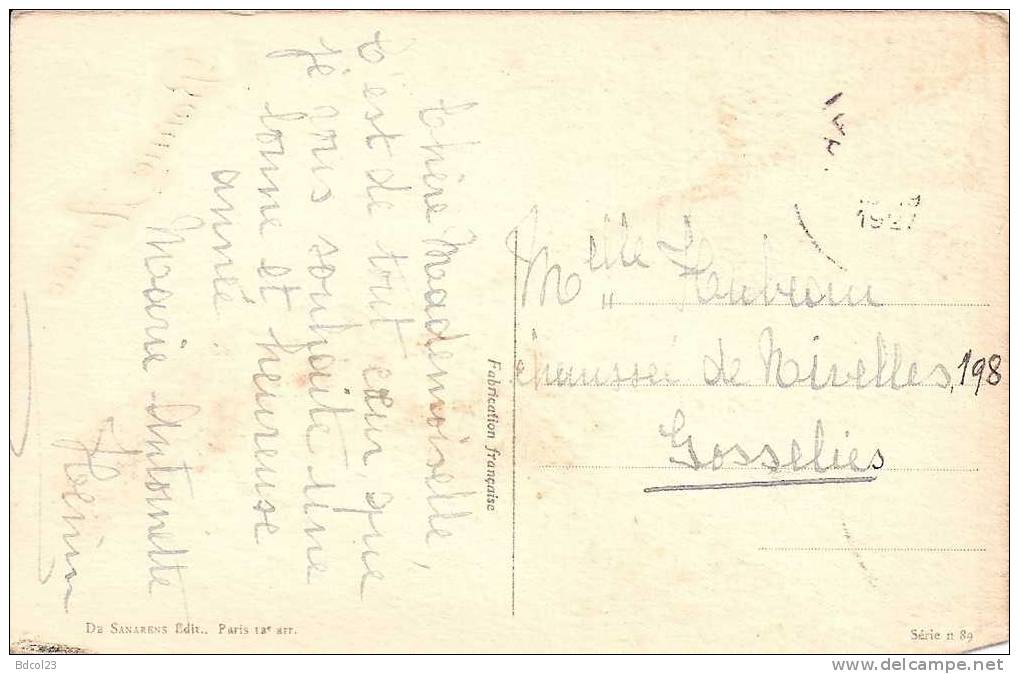 Chère Mademoiselle,
C'est de tout cœur que
je vous souhaite une
bonne et heureuse
année.
Marie-Antoinette
Fabrication française
Mlle
chaussée de Nivelles, 198
Gosselies
DE SANARENS Édit.. Paris 12e arr.
Série n 89
Bdcol23
www.delcampe.net